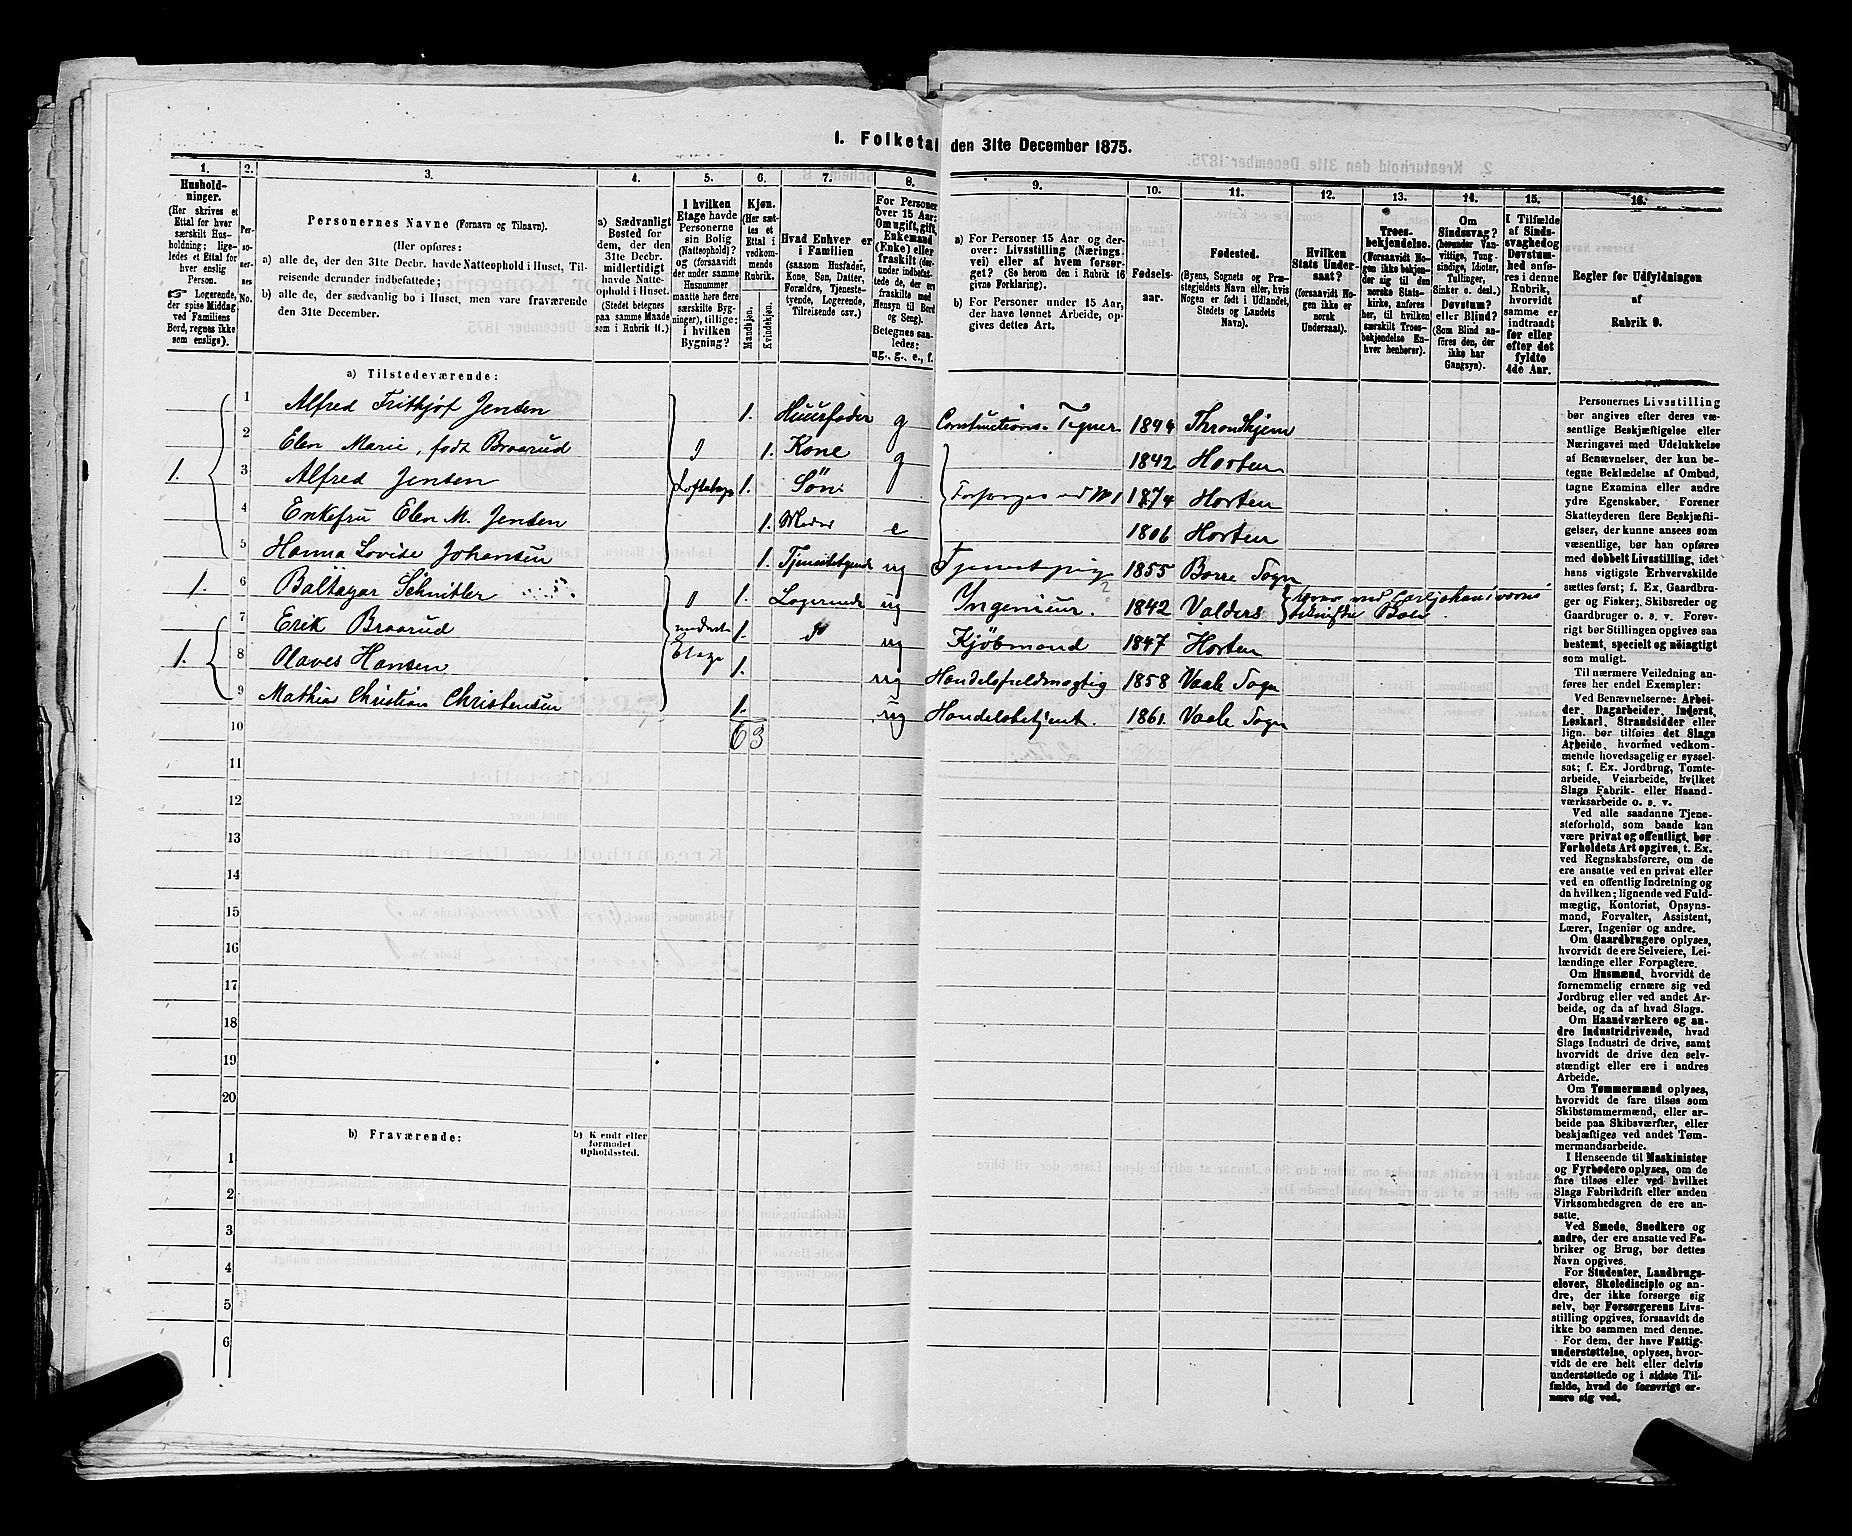 1. Folketal den 31te December 1875.
1. 2. 3. 4. 5. 6. 7. 8. 9. 10. 11. 12. 13. 14. 15. 16.
Hushold-
ninger.
(Her skrives et
Ettal for hver
særskilt Hus-
holdning; lige-
ledes et Ettal for
hver enslig
Person.
☞ Logerende,
der spise Middag
ved Familiens
Bord, regnes ikke
som enslige).
Per-
so-
ner-
nes
No.
Personernes Navne (Fornavn og Tilnavn).
(Her opføres:
a) alle de, der den 31te Decbr. havde Natteophold i Huset, Til-
reisende derunder indbefattede;
b) alle de, der sædvanlig bo i Huset, men vare fraværende
den 31te December.
a) Sædvanligt
Bosted for
dem, der den
31te Decbr.
midlertidigt
havde Natte-
ophold i Huset.
(Stedet betegnes
paa samme Maade
som i Rubrik 11.)
I hvilken
Etage havde
Personerne
sin Bolig
(Natteophold)?
og (forsaavidt
der under samme
Husnummer
maatte høre flere
særskilte Byg-
ninger), tillige:
i hvilken
Bygning?
Kjøn.
(Her sæt-
tes et
Ettal i
vedkom-
mende
Rubrik.
Mandkjøn.
Kvindekjøn.
Hvad Enhver er
i Familien
(saasom Husfader,
Kone, Søn, Datter,
Forældre, Tjeneste-
tyende, Logerende,
Tilreisende osv.)
For Personer
over 15 Aar:
Om ugift, gift,
Enkemand
(Enke) eller
fraskilt (der-
under indbefat-
tede de, der ere
fraskilte med
Hensyn til Bord
og Seng).
Betegnes saa-
ledes:
ug., g., e., f.
a) For Personer 15 Aar og der-
over: Livsstilling (Nærings-
vei) eller af hvem forsør-
get? (Se herom den i Rubrik 16
givne Forklaring).
b) For Personer under 15 Aar,
der have lønnet Arbeide, op-
gives dettes Art.
Fødsels-
aar.
Fødested.
(Byens, Sognets og Præ-
stegjeldets Navn eller, hvis
Nogen er født i Udlandet,
Stedets og Landets
Navn).
Hvilken
Stats Under-
saat?
(forsaavidt No-
gen ikke er
norsk
Undersaat).
Troes-
bekjendelse.
(Forsaavidt No-
gen ikke bekjen-
der sig til den
norske Stats-
kirke, anføres
her, til hvilken
særskilt Troes-
bekjendelse En-
hver henhører).
Om
Sindssvag?
(herunder Van-
vittige, Tung-
sindige, Idioter,
Tullinger,
Sinker o. desl.)
Døvstum?
eller Blind?
(Som Blind an-
føres den, der
ikke har
Gangsyn).
I Tilfælde
af Sinds-
svaghed og
Døvstum-
hed anfø-
res i denne
Rubrik,
hvorvidt
samme er
indtraadt
før eller
efter det
fyldte
4de Aar.
Regler for Udfyldningen
af
Rubrik 9.
a) Tilstedeværende:
1 Alfred Frithjof Jensen 1. Huusfader g Constructions-Tegner 1844 Throndhjem
2 Elen Marie, født Braarud 1. Kone g 1842 Horten
1. 3 Alfred Jensen 1. Søn Forsørges ved No 1 1874 Horten
4 Enkefru Elen M. Jensen 1. Moder e 1806 Horten
5 Hanna Lovise Johansen 1. Tjenestetyende ug 1855 Borre Sogn
1. 6 Baltazar Schnitler 1. Logerende ug Ingeniør 1842 Valders
7 Erik Braarud nederste 1. do ug Kjöbmand 1847 Horten
1. 8 Olaves Hansen Etage 1. ug Handelsfuldmægtig 1858 Vaale Sogn
9 Mathias Christian Christensen 1. ug Handelsbetjent. 1861. Vaale Sogn
10 6 3
11
12
13
14
15
16
17
18
19
20
b) Fraværende:
b) Kjendt eller
formodet
Opholdssted.
1
2
3
4
5
6
Personernes Livsstilling
bør angives efter deres væ-
sentlige Beskjæftigelse eller
Næringsvei med Udelukkelse
af Benævnelser, der kun be-
tegne Beklædelse af Ombud,
tagne Examina eller andre
ydre Egenskaber. Forener
Skatteyderen flere Beskjæfti-
gelser, der kunne ansees som
væsentlige, bør han opføres
med dobbelt Livsstilling, idet
hans vigtigste Erhvervskilde
sættes først; f. Ex. Gaardbru-
ger og Fisker; Skibsreder og
Gaardbruger o. s. v. Forøv-
rigt bør Stillingen opgives saa
bestemt, specielt og nøiagtigt
som muligt.
Til nærmere Veiledning an-
føres her endel Exempler:
Ved Benævnelserne: Arbei-
der, Dagarbeider, Inderst,
Løskarl, Strandsidder eller
lign. bør tilføies det Slags
Arbeide, hvormed vedkom-
mende hovedsagelig er syssel-
sat; f. Ex. Jordbrug, Tomte-
arbeide, Veiarbeide, hvilket
Slags Fabrik- eller Haand-
værksarbeide o. s. v.
Ved alle saadanne Tjene-
steforhold, som baade kan
være privat og offentligt, bør
Forholdets Art opgives, t. Ex.
ved Regnskabsførere, om de
ere ansatte ved en privat eller
ved en offentlig Indretning og
da hvilken; lignende ved Fuld-
mægtig, Kontorist, Opsyns-
mand, Forvalter, Assistent,
Lærer, Ingeniør og andre.
Om Gaardbrugere oplyses,
hvorvidt de ere Selveiere, Lei-
lændinge eller Forpagtere.
Om Husmænd, hvorvidt de
fornemmelig ernære sig ved
Jordbrug eller ved andet Ar-
beide, og da af hvad Slags.
Om Haandværkere og an-
dre Industridrivende, hvad
Slags Industri de drive, samt
hvorvidt de drive den selv-
stændigt eller ere i andres
Arbeide.
Om Tømmermænd oplyses,
hvorvidt de fare tilsøs som
Skibstømmermænd, eller ar-
beide paa Skibsværfter, eller
beskjæftiges ved andet Tøm-
mermandsarbeide.
I Henseende til Maskinister
og Fyrbødere oplyses, om de
fare tilsøs eller ved hvilket
Slags Fabrikdrift eller anden
Virksomhedsgren de ere an-
satte.
Ved Smede, Snedkere og
andre, der ere ansatte ved Fa-
briker og Brug, bør dettes
Navn opgives.
For Studenter, Landbrugs-
elever, Skoledisciple og an-
dre, der ikke forsørge sig
selv, bør Forsørgerens Livs-
stilling opgives, forsaavidt de
ikke bo sammen med denne.
For dem, der have Fattig-
understøttelse, oplyses, hvor-
vidt de ere helt eller delvis
understøttede og i sidste Til-
fælde, hvad de forøvrigt er-
nære sig ved.